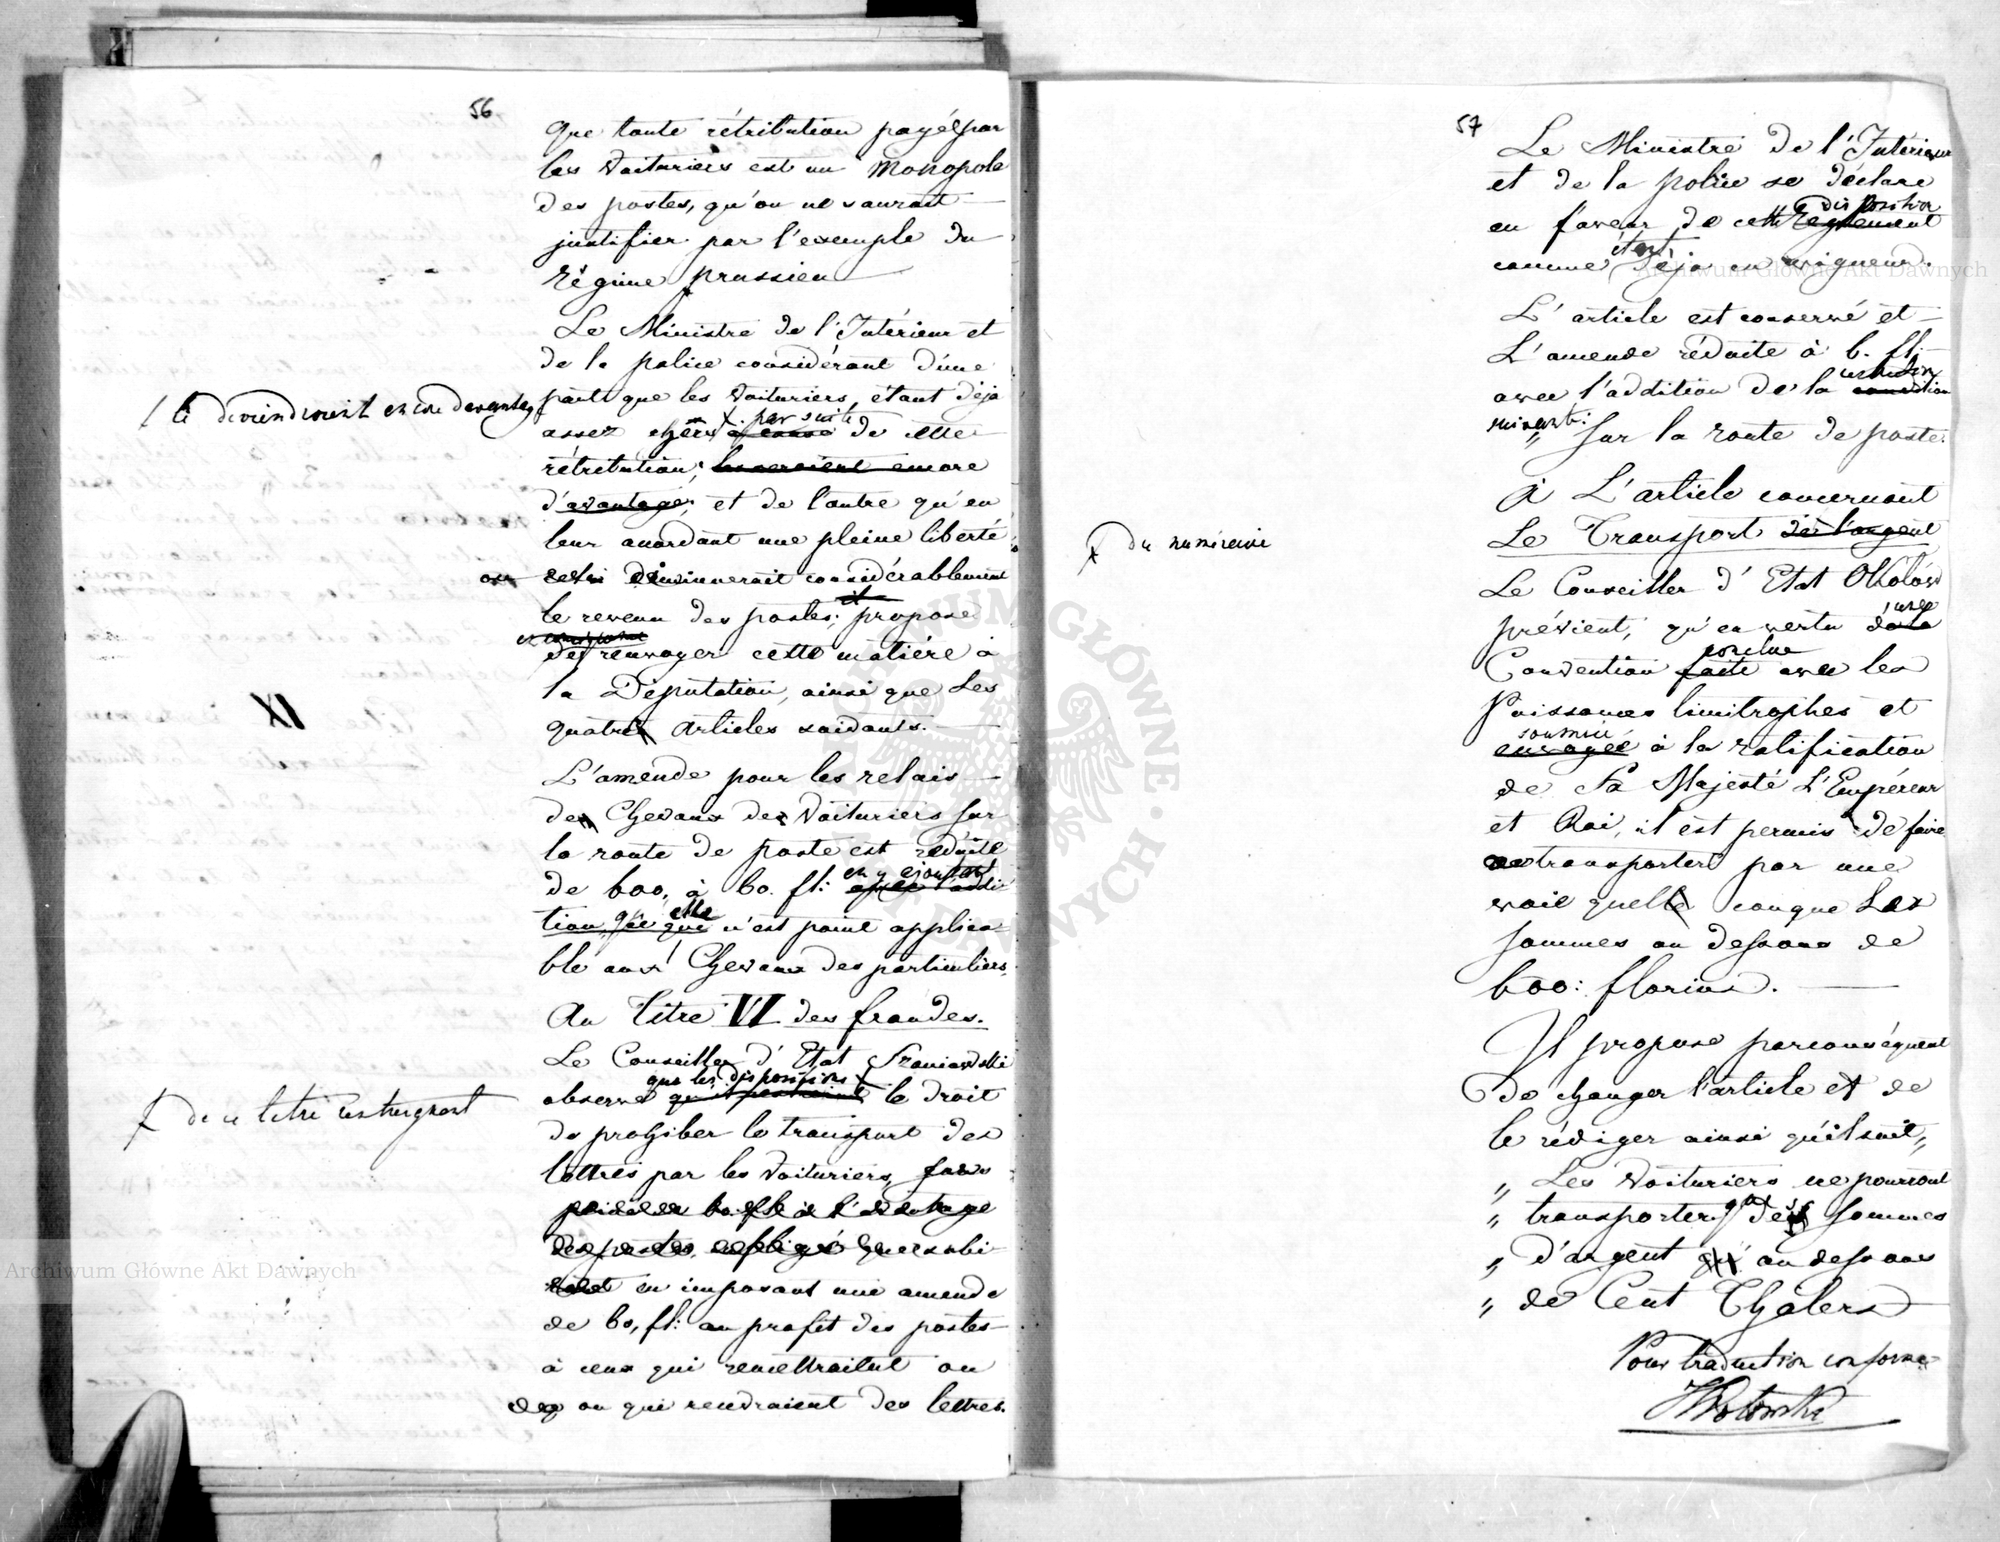 56
que toute rétribution payée par
les Voituriers est un Monopole
des postes, qu'on ne saurait
justifier par l'exemple du
Régime prussien
Le Ministre de l'Intérieur et
de la police considérant d'une
part que les Voituriers, étant déjà
/ le deviendroient encore davantage
assez chers à cause par suite de cette
rétribution, les seraient encore
d'avantage, et de l'autre qu'en
leur accordant une pleine liberté
on diminuerait considérablement
le revenu des postes; il propose
de renvoyer cette matière à
la Députation, ainsi que les
quatre articles suivants.
IX
L'amende pour les relais
des Chevaux des Voituriers sur
la route de poste est réduite
de 600, à 60. fl: en y ajoutant avec l'addi
tion, que elle qui n'est point applica
ble aux Chevaux des particuliers.
Au Titre VI des fraudes.
Le Conseiller d'Etat Szaniawski
observe que les dispositions le droit
de ce titre restreignent
de prohiber le transport des
lettres par les Voituriers,
en imposant une amende
de 60, fl: au profit des postes
à ceux qui remettraient ou
ou qui rendraient des lettres.
57
Le Ministre de l'Intérieur
et de la police se déclare
en faveur de cette disposition Règlement
comme étant déja en vigueur.
L'article est conservé et
L'amende réduite à 6. fl:
avec l'addition de la condition
suivante: " Sur la route de poste.
A L'article concernant
Le Transport de l'argent
du numéraire
Le Conseiller d'Etat Okołow
prévient, qu'en vertu d'une de la
Convention conclue faite avec les
Puissances limitrophes et
soumise envoyée à la ratification
de Sa Majesté L'Empéreur
et Roi, il est permis de faire
transporter par une
voie quelconque Les
sommes au dessous de
600: florins.
Il propose parconséquent
De changer l'article et de
le rédiger ainsi qu'il suit,,
,, Les Voituriers ne pourront
,, transporter que des sommes
,, d'argent au dessous
,, de Cent Thalers
Pour traduction conforme
Archiwum Główne Akt Dawnych
Archiwum Główne Akt Dawnych
ARCHIWUM GŁÓWNE AKT DAWNYCH